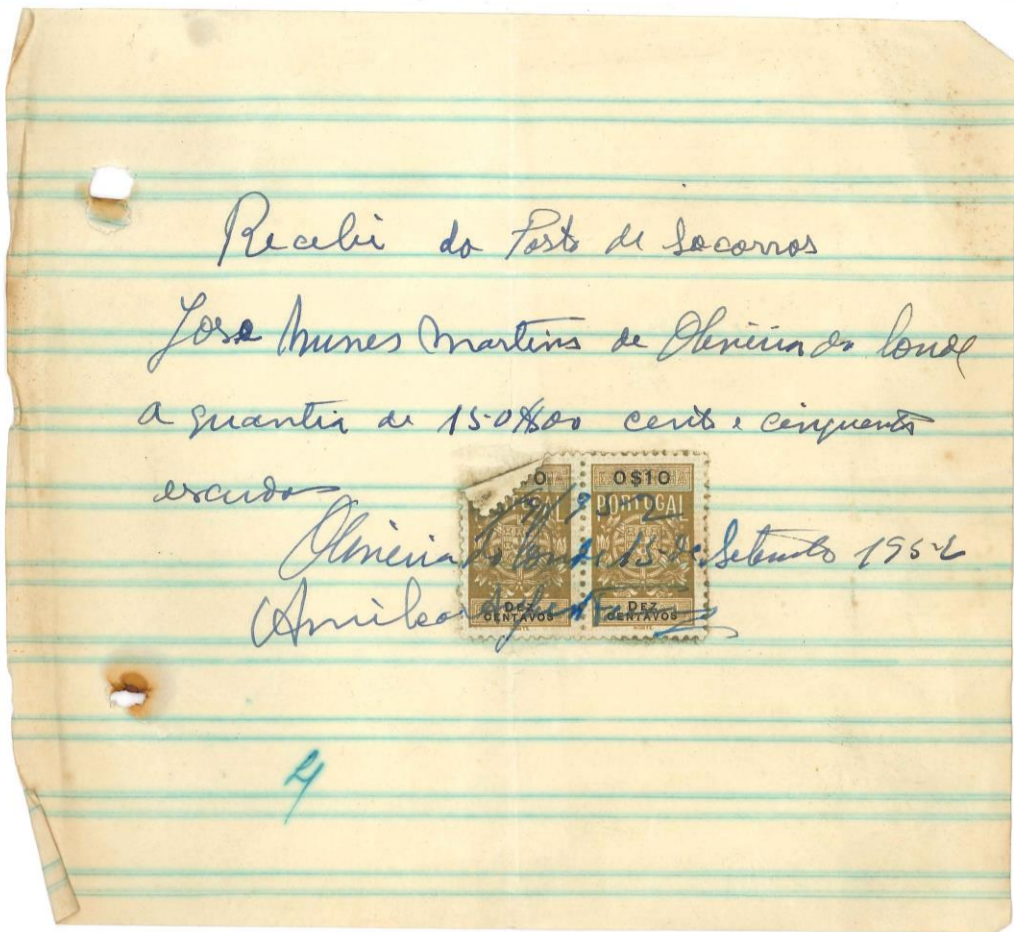 Recebi do Posto de Socorros
José Nunes Martins de Oliveira do Conde
a quantia de 150$00 cento e cinquenta
escudos
0$10
PORTUGAL
DEZ CENTAVOS
DEZ CENTAVOS
Oliveira do Conde 15 de Setembro 1952
Amilcar
4